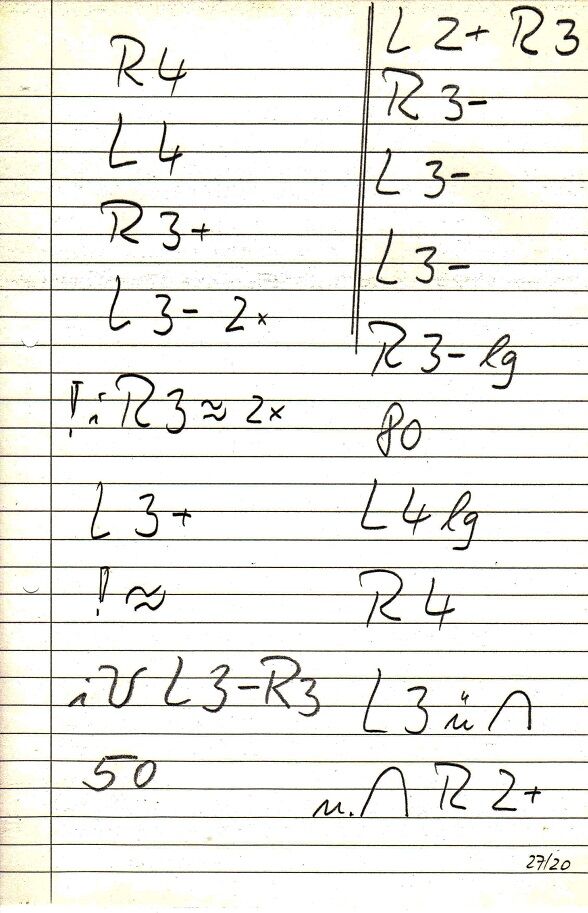 R4
L4
R3+
L3- 2x
!iR3≈ 2x
L3+
!≈
i∪ L3-R3
50
L2+ R3
R3-
L3-
L3-
R3- lg
80
L4 lg
R4
L3 ü∩
n.∩ R2+
27/20